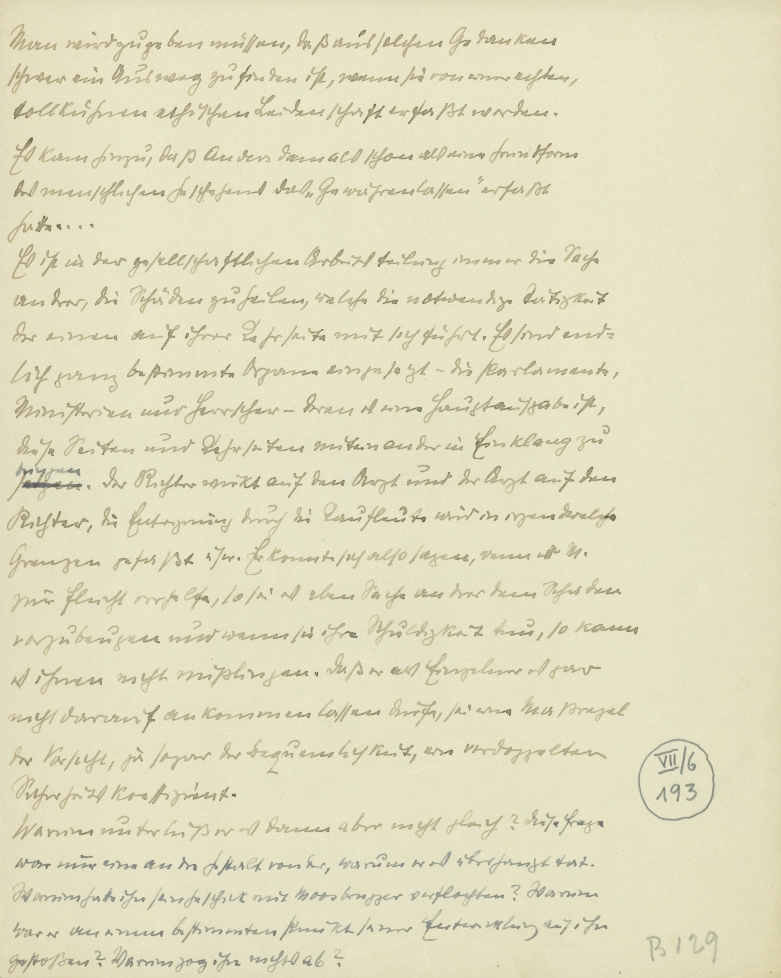 Man wird zugeben müssen, daß aus solchen Gedanken
schwer ein Ausweg zu finden ist, wenn sie von einer echten,
tollkühnen ethischen Leidenschaft erfaßt werden.
Es kam hinzu, daß Anders damals schon als eine Grundform
des menschlichen Geschehens das „Gewährenlassen" erfaßt
hatte....
Es ist in der gesellschaftlichen Arbeitsteilung immer die Sache
andrer, die Schäden zu heilen, welche die notwendige Tätigkeit
der einen auf ihrer Kehrseite mit sich führt. Es sind end=
lich ganz bestimmte Organe eingesetzt – die Parlamente,
Ministerien und Herrscher – deren es eine Hauptaufgabe ist,
diese Seiten und Kehrseiten miteinander in Einklang zu
bringen
setzen. Der Richter wirkt auf den Arzt und der Arzt auf den
Richter, die Enteignung durch die Kaufleute wird in irgendwelche
Grenzen gefaßt usw. Er konnte sich also sagen, wenn er M.
zur Flucht verhelfe, so sei es eben Sache andrer dem Schaden
vorzubeugen und wenn sie ihre Schuldigkeit tun, so kann
es ihnen nicht mißlingen. Daß er als Einzelner es gar
nicht darauf ankommen lassen dürfe, sei eine Maßregel
der Vorsicht, ja sogar der Bequemlichkeit, ein verdoppelter
Sicherheitskoeffizient.
Warum unterließ er es dann aber nicht gleich? Diese Frage
war nur eine andre Gestalt von der, warum er es überhaupt tat.
Warum hatte ihn sein Geschick mit Moosbrugger verflochten? Warum
war er an einem bestimmten Punkt seiner Entwicklung auf ihn
gestoßen? Warum zog ihn nichts ab?
VII/6
193
B 129